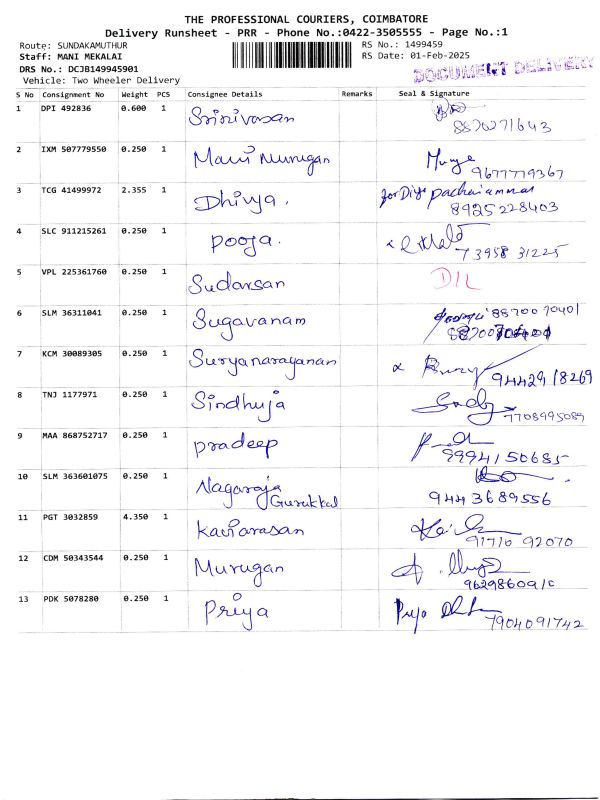 THE PROFESSIONAL COURIERS, COIMBATORE
Delivery Runsheet - PRR - Phone No.:0422-3505555 - Page No.:1
Route: SUNDAKAMUTHUR
RS No.: 1499459
Staff: MANI MEKALAI
RS Date: 01-Feb-2025
DRS No.: DCJB149945901
DOCUMENT DELIVERY
Vehicle: Two Wheeler Delivery
S No Consignment No Weight PCS Consignee Details Remarks Seal & Signature
1 DPI 492836 0.600 1 Srinivasan
8870271643
2 IXM 507779550 0.250 1 Mani Murugan
9677779367
3 TCG 41499972 2.355 1 Dhivya. for Divya pachaiammal
8925228403
4 SLC 911215261 0.250 1 pooja.
73958 31225
5 VPL 225361760 0.250 1 Sudarsan D/L
6 SLM 36311041 0.250 1 Sugavanam 88700 70401
7 KCM 30089305 0.250 1 Suryanarayanan
9442918269
8 TNJ 1177971 0.250 1 Sindhuja
7708995089
9 MAA 868752717 0.250 1 pradeep
9994150685
10 SLM 363601075 0.250 1 Nagaraja
Gurukkal 9443689556
11 PGT 3032859 4.350 1 Kaviarasan
91710 92070
12 CDM 50343544 0.250 1 Murugan
13 PDK 5078280 0.250 1 Priya Priya
7904091742